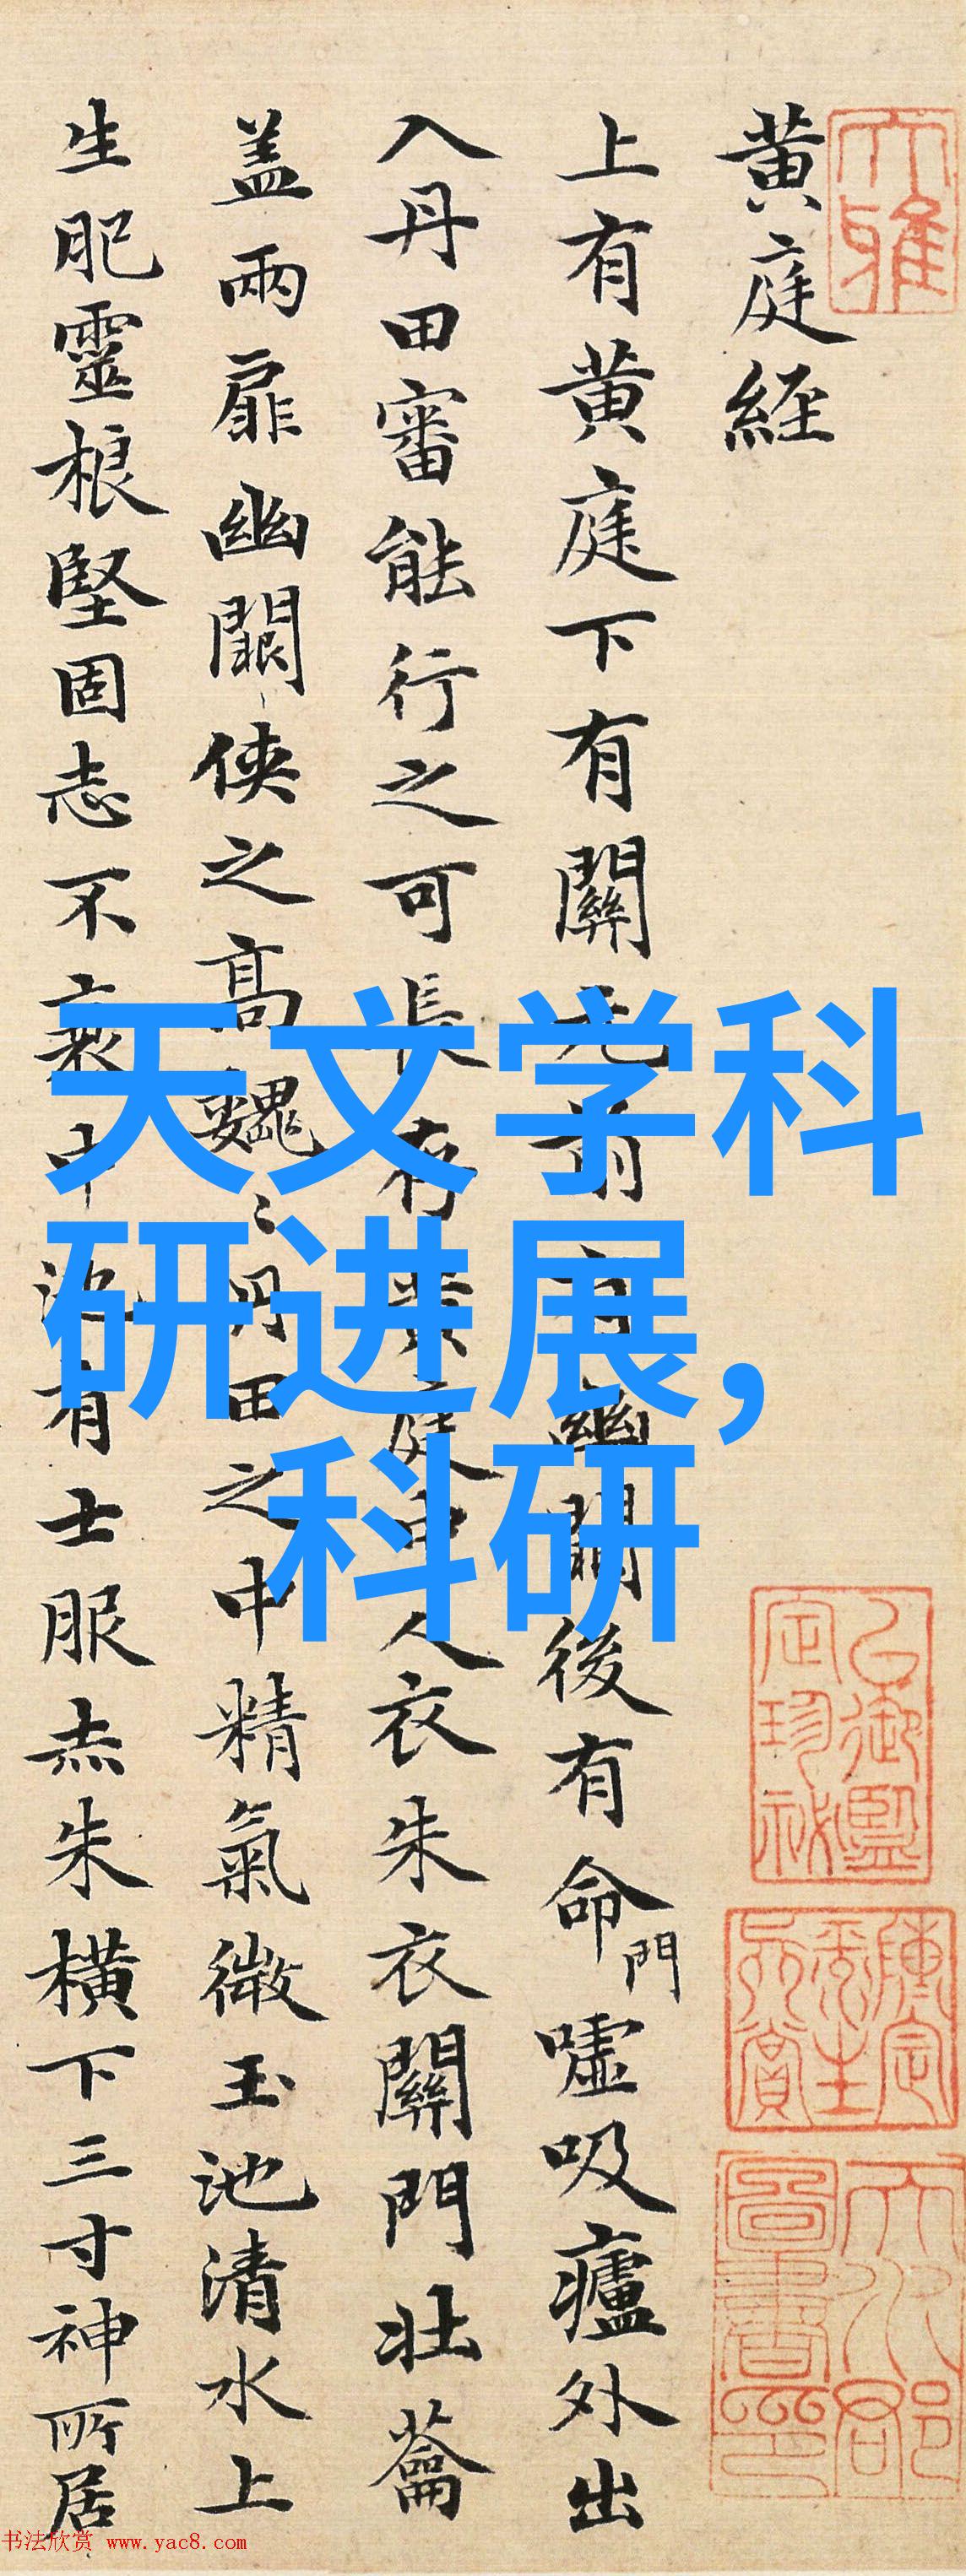 大雅
黄庭經
上有黄庭下有關元前有幽闕後有命門嘘吸廬外出
入丹田審能行之可長存黄庭中人衣朱衣關門壮蘥
盖兩扉幽闕侠之高魏〻丹田之中精氣微玉池清水上
生肥靈根堅固志不衰中池有士服赤朱横下三寸神所居
天文学科
研进展,
科研
书法欣赏 www.yac8.com